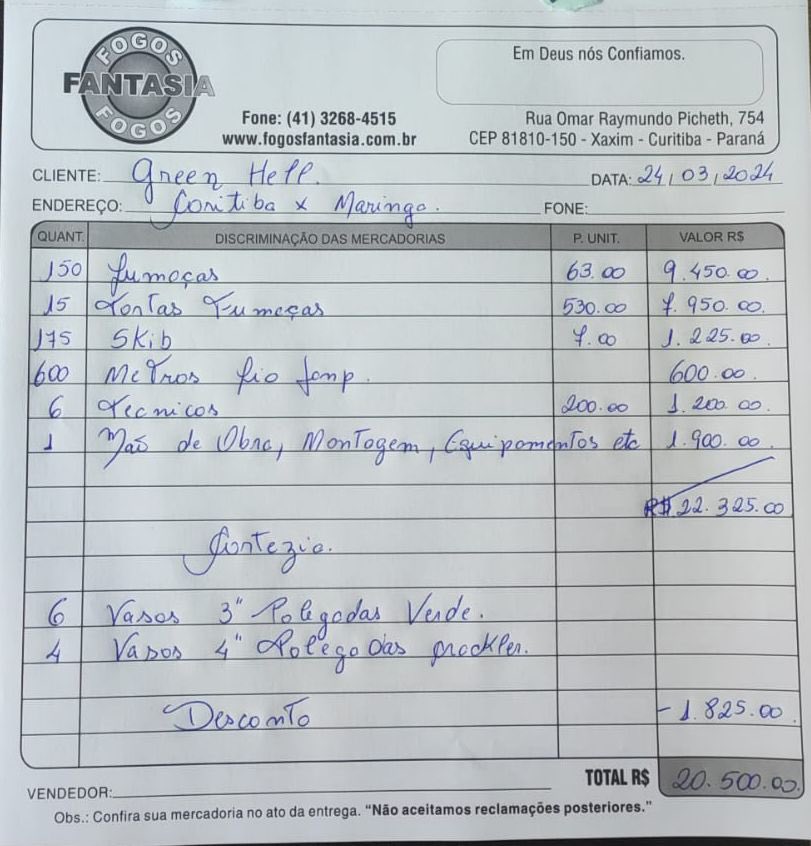 FOGOS
FANTASIA
FOGOS
Em Deus nós Confiamos.
Fone: (41) 3268-4515
www.fogosfantasia.com.br
Rua Omar Raymundo Picheth, 754
CEP 81810-150 - Xaxim - Curitiba - Paraná
CLIENTE: Green Hell. DATA: 24/03/2024
ENDEREÇO: Coritiba x Maringa. FONE:
QUANT. DISCRIMINAÇÃO DAS MERCADORIAS P. UNIT. VALOR R$
150 fumaças 63.00 9.450.00
15 Tortas Fumaças 530.00 7.950.00
175 Skib 7.00 1.225.00
600 Metros fio 600.00
6 Tecnicos 200.00 1.200.00
1 Mão de Obra, Montagem, Equipamentos etc 1.900.00
R$ 22.325.00
Cortezia.
6 Vasos 3" Polegadas Verde.
4 Vasos 4" Polegadas
Desconto - 1.825.00
TOTAL R$ 20.500.00
VENDEDOR:
Obs.: Confira sua mercadoria no ato da entrega. “Não aceitamos reclamações posteriores.”